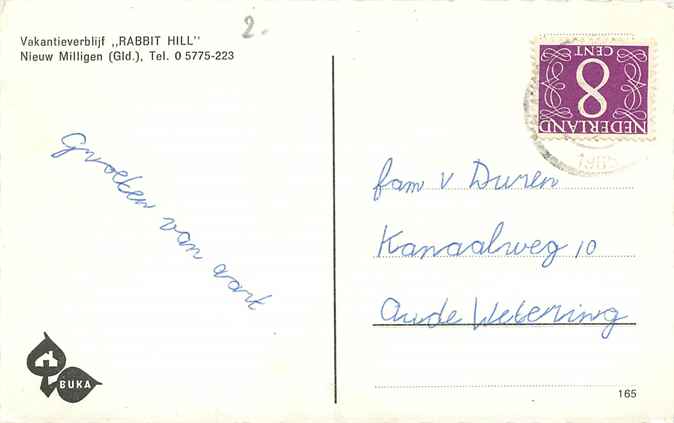 2.
Vakantieverblijf „RABBIT HILL"
Nieuw Milligen (Gld.), Tel. 0 5775-223
NEDERLAND
8
CENT
Groeten van aart
fam v Duren
Kanaalweg 10
Oude Wetering
BUKA
165